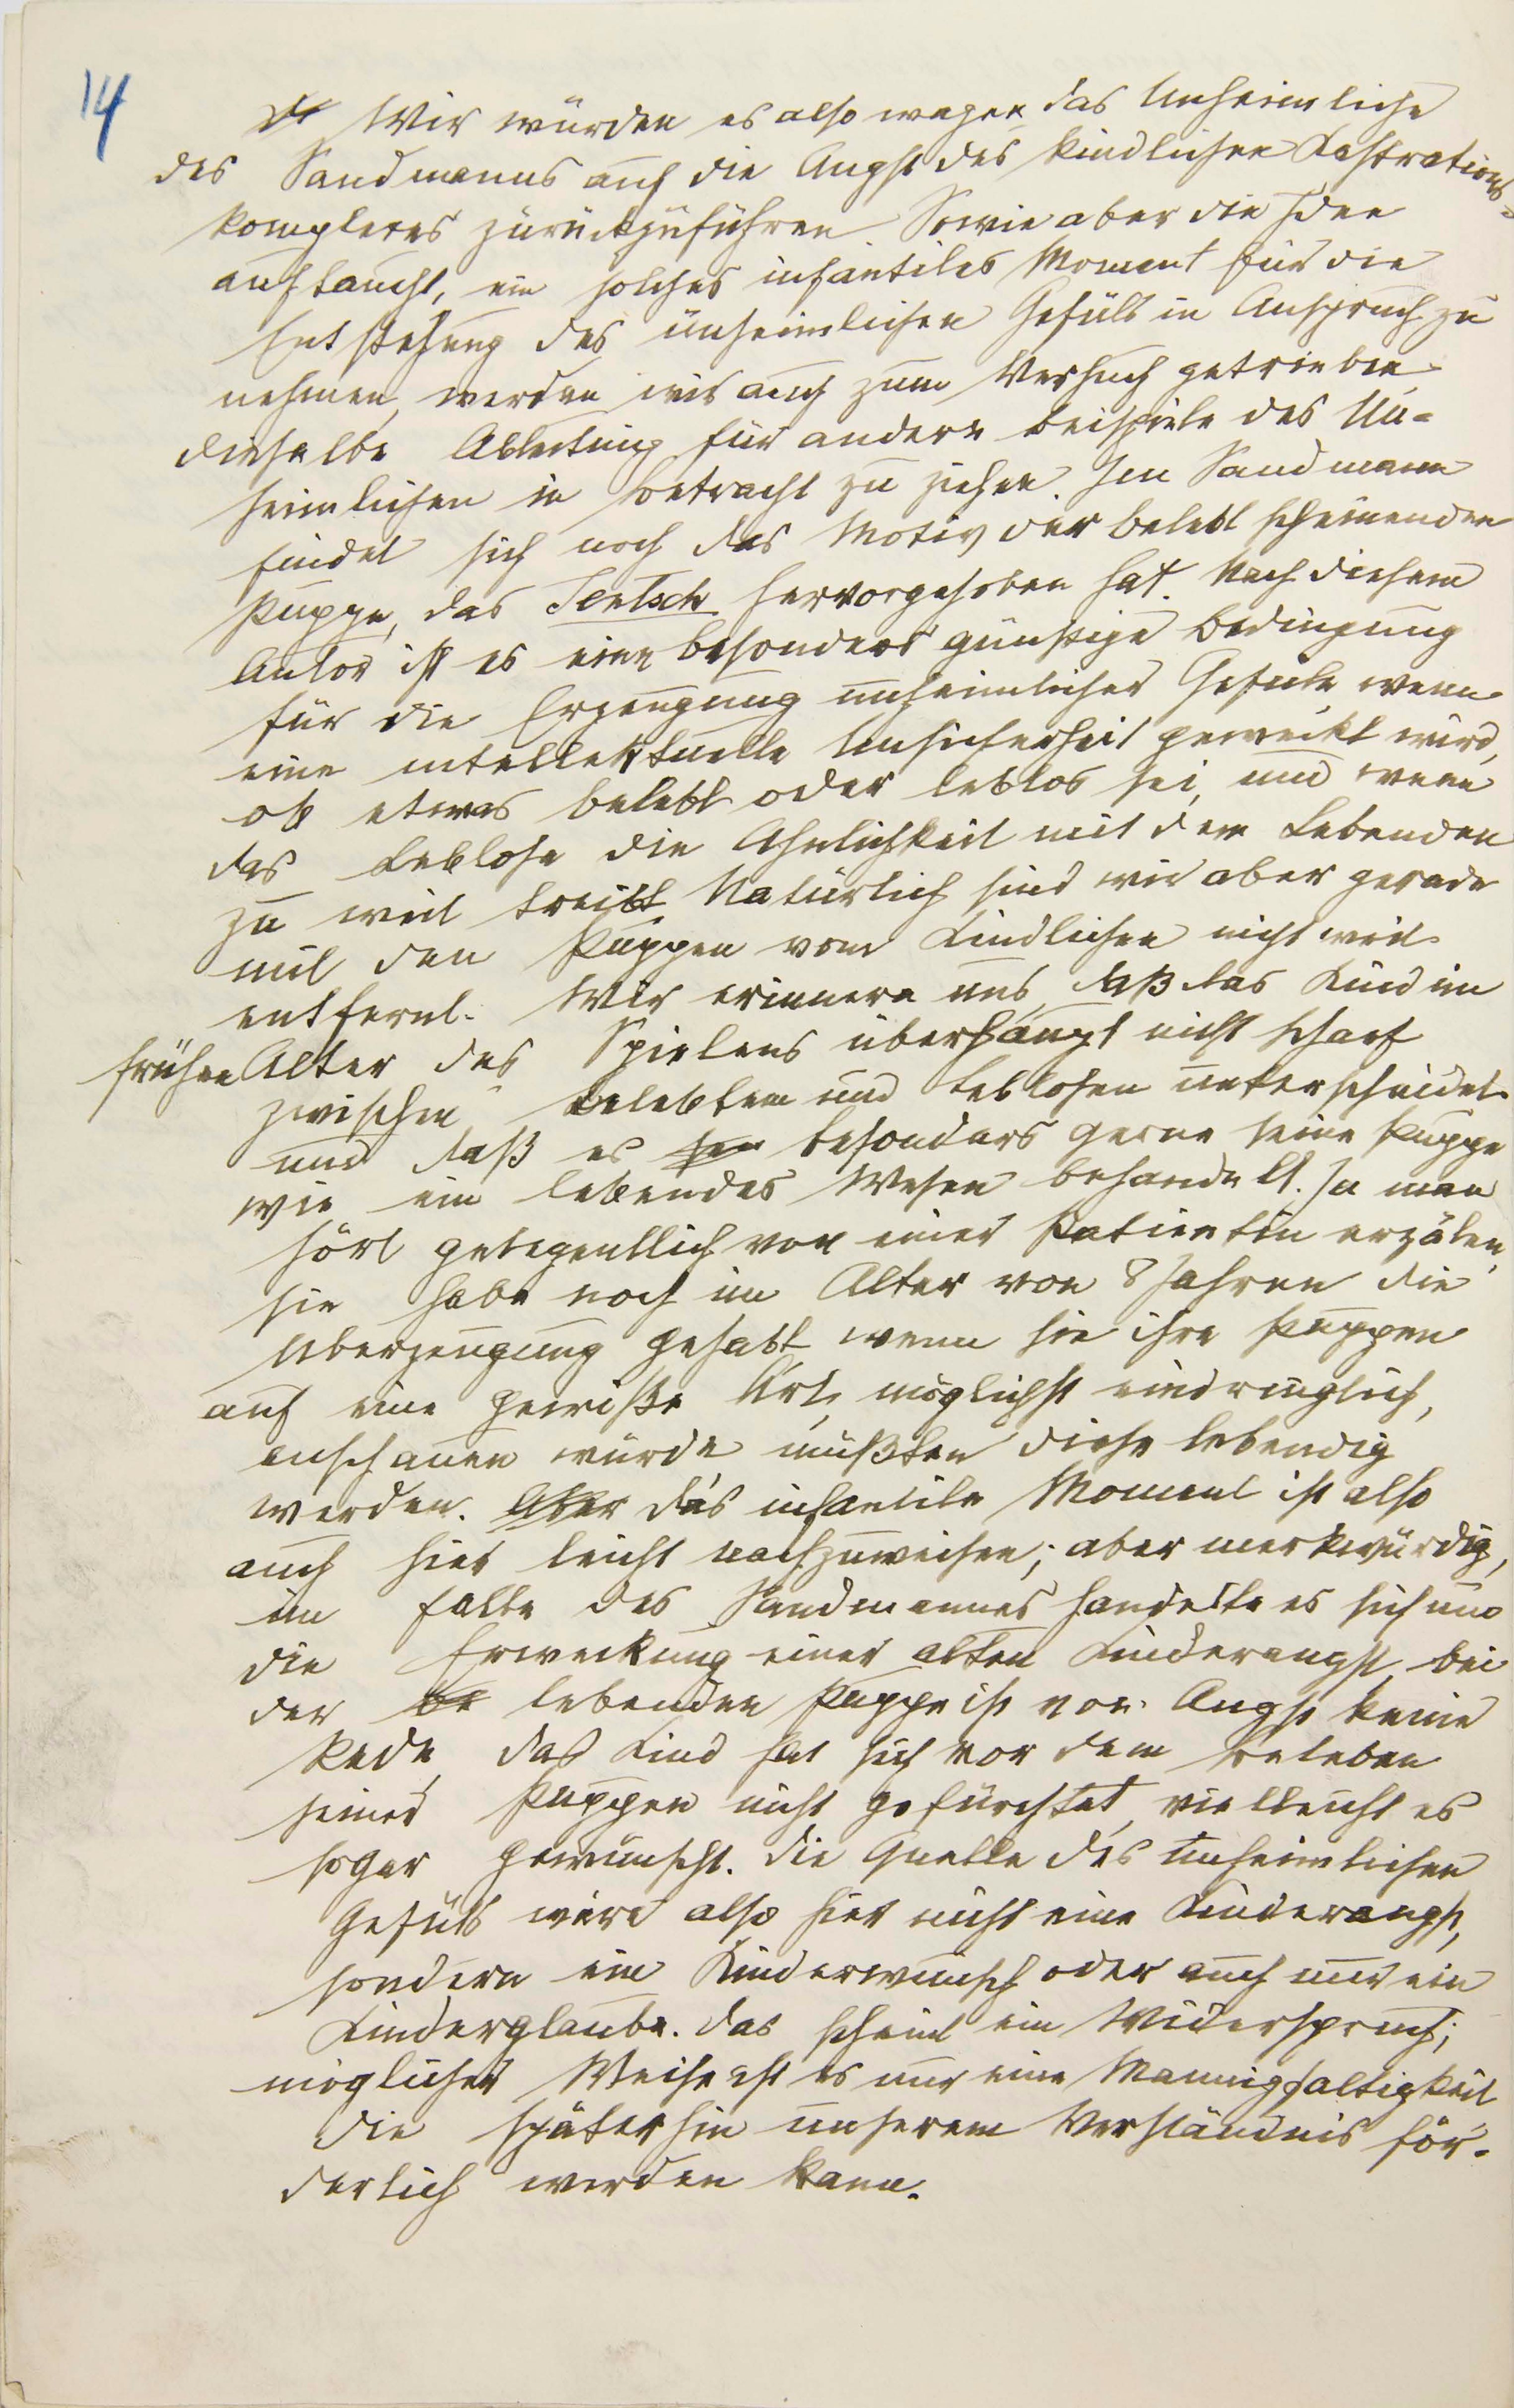 14
Wir würden es also wagen das Unheimliche
des Sandmanns auf die Angst des kindlichen Kastrations=
komplexes zurückzuführen. Sowie aber die Idee
auftaucht, ein solches infantiles Moment für die
Entstehung des unheimlichen Gefüls in Anspruch zu
nehmen, werden wir auch zum Versuch getrieben,
dieselbe Ableitung für andere Beispiele des Un=
heimlichen in Betracht zu ziehen. Im Sandmann
findet sich noch das Motiv der belebt scheinenden
Puppe, das Jentsch hervorgehoben hat. Nach diesem
Autor ist es eine besonders günstige Bedingung
für die Erzeugung unheimlicher Gefüle, wenn
eine intellektuelle Unsicherheit geweckt wird,
ob etwas belebt oder leblos sei, und wenn
das Leblose die Ähnlichkeit mit dem Lebenden
zu weit treibt. Natürlich sind wir aber gerade
mit den Puppen vom Kindlichen nicht weit
entfernt. Wir erinnern uns, daß das Kind im
frühen Alter des Spielens überhaupt nicht scharf
zwischen Belebtem und Leblosen unterscheidet
und daß es besonders gerne seine Puppe
wie ein lebendes Wesen behandelt. Ja man
hört gelegentlich von einer Patientin erzälen,
sie habe noch im Alter von 8 Jahren die
Uberzeugung gehabt, wenn sie ihre Puppen
auf eine gewiße Art, möglichst eindringlich,
anschauen würde müßten diese lebendig
werden. Aber das infantile Moment ist also
auch hier leicht nachzuweisen; aber merkwürdig,
im Falle des Sandmannes handelte es sich um
die Erweckung einer alten Kinderangst, bei
der be lebenden Puppe ist von Angst keine
Rede, das Kind hat sich vor dem Beleben
seiner Puppen nicht gefürchtet, vielleicht es
sogar gewünscht. Die Quelle des unheimlichen
Gefüls wäre also hier nicht eine Kinderangst,
sondern ein Kinderwunsch oder auch nur ein
Kinderglaube. Das scheint ein Widerspruch;
möglicher Weise ist es nur eine Mannigfaltigkeit,
die späterhin unserem Verständnis för=
derlich werden kann.